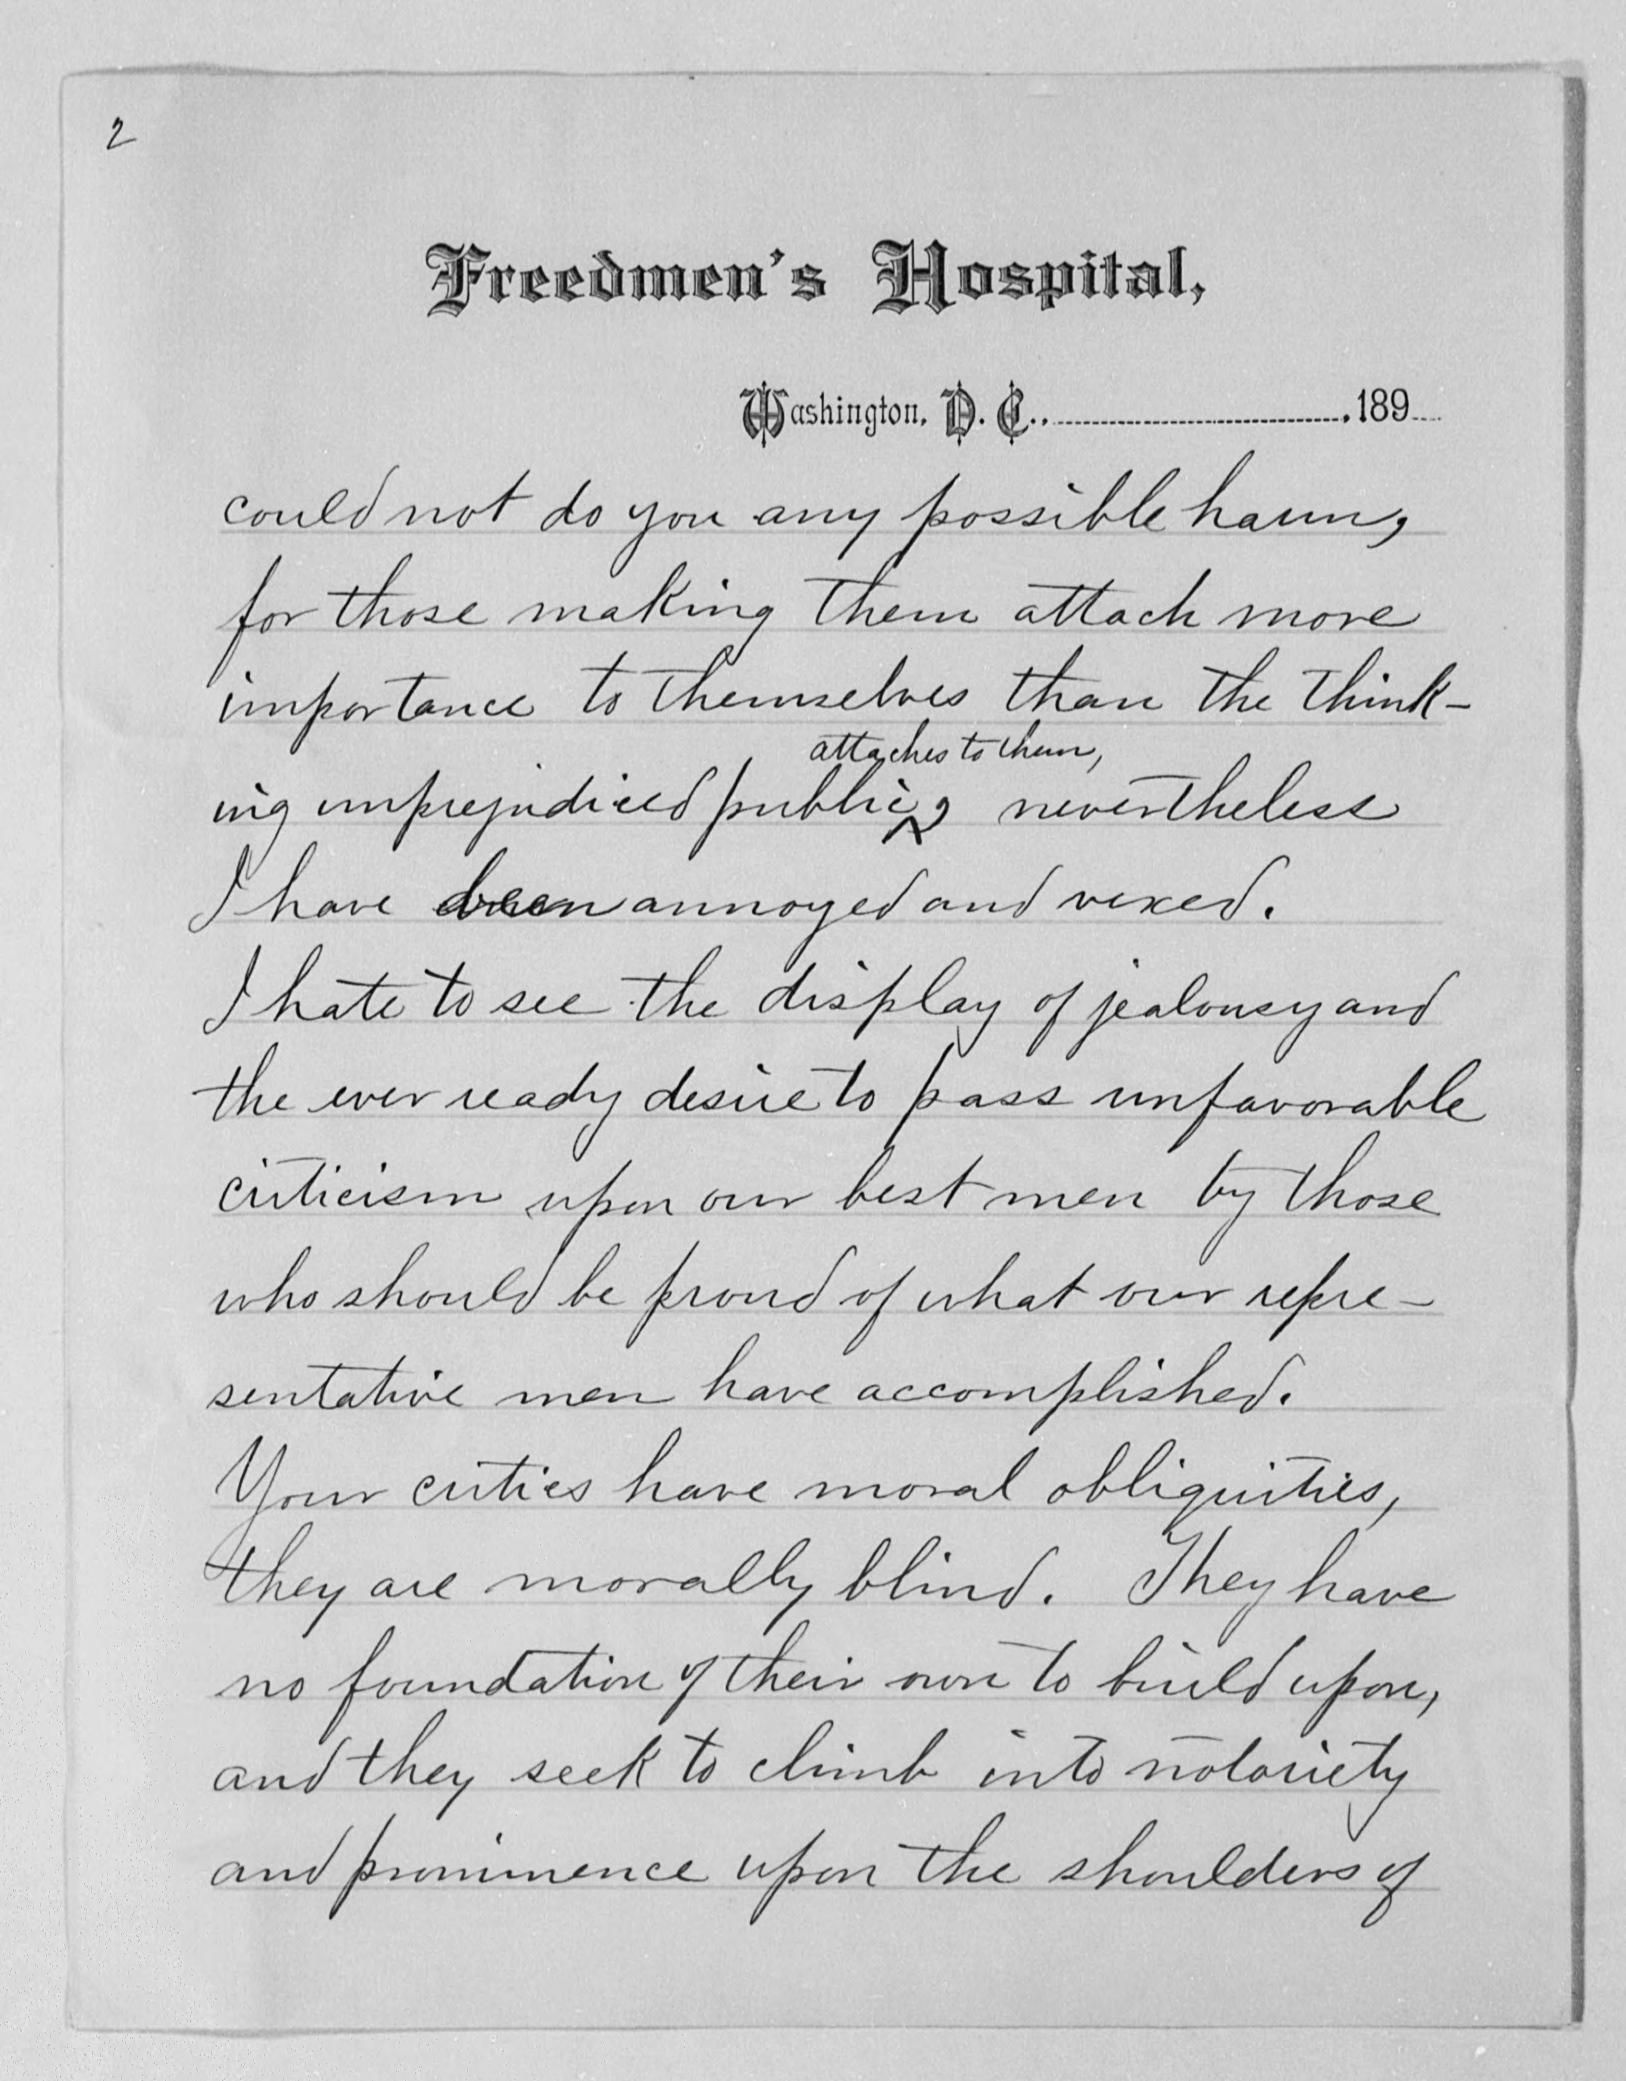 2
Freedmen's Hospital,
Washington, D. C., ..............................., 189....
could not do you any possible harm,
for those making them attach more
importance to themselves than the think-
attaches to them,
ing unprejudiced public^, nevertheless
I have been annoyed and vexed.
I hate to see the display of jealousy and
the ever ready desire to pass unfavorable
criticism upon our best men by those
who should be proud of what our repre-
sentative men have accomplished.
Your critics have moral obliquities,
they are morally blind. They have
no foundation of their own to build upon,
and they seek to climb into notoriety
and prominence upon the shoulders of